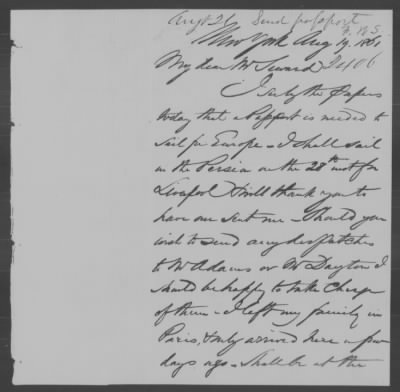 Augt 21 Send passport
F. W. S.
New York Aug 19. 1861
My dear Mr Seward 2406
I see by the papers
today that a Passport is needed to
sail for Europe - I shall sail
in the Persia on the 28th inst for
Liverpool & will thank you to
have one sent me - Should you
wish to send any despatches
to Mr Adams or Mr Dayton I
should be happy to take charge
of them - I left my family in
Paris, & only arrived here a few
days ago - shall be at the